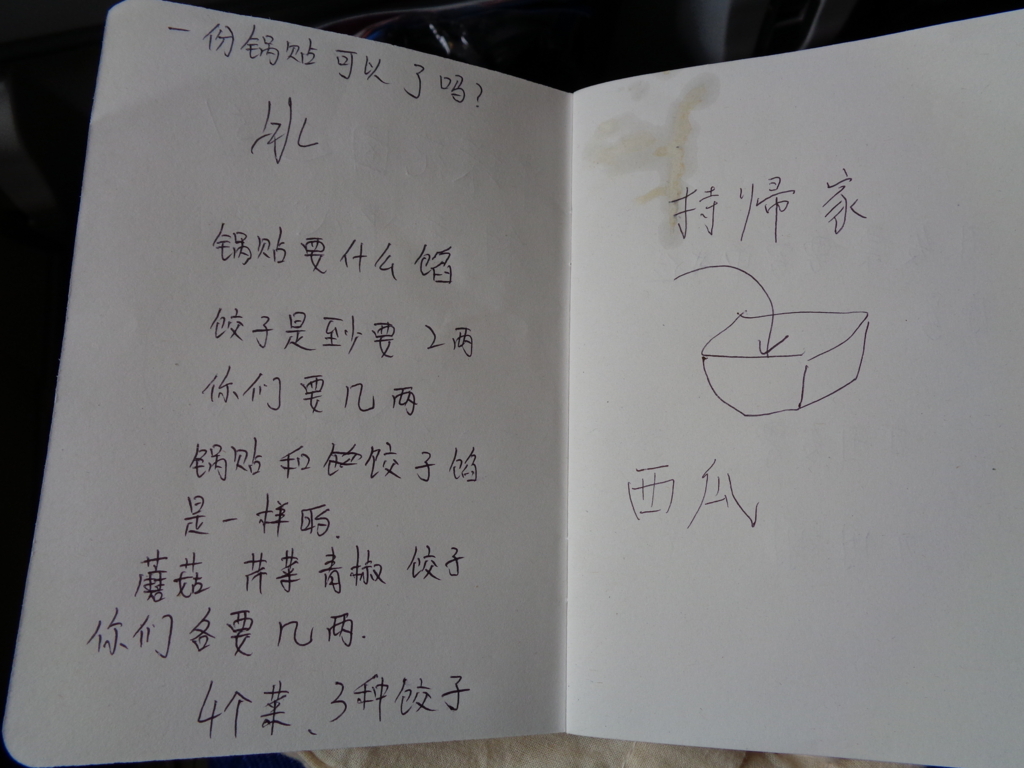 一份锅贴可以了吗?
锅贴要什么馅
饺子是至少要2两
你们要几两
锅贴和饺子馅
是一样的.
蘑菇 芹菜 青椒 饺子
你们各要几两.
4个菜、3种饺子
持帰家
西瓜